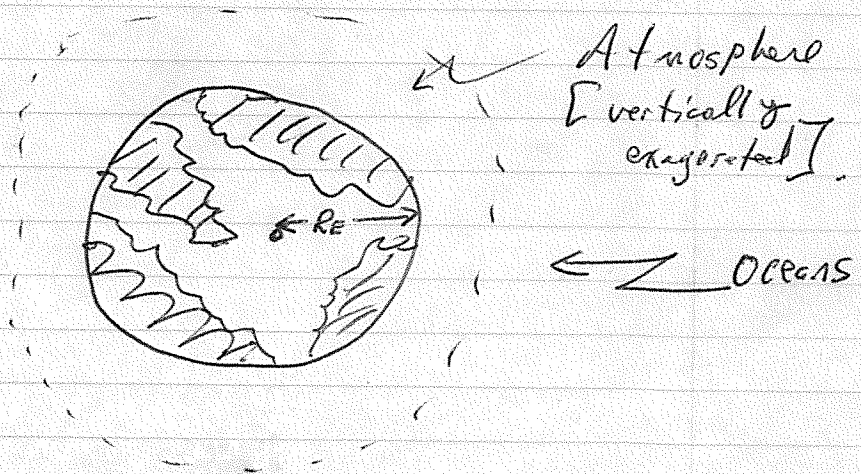 Atmosphere
[vertically
exagerated].
RE
Oceans